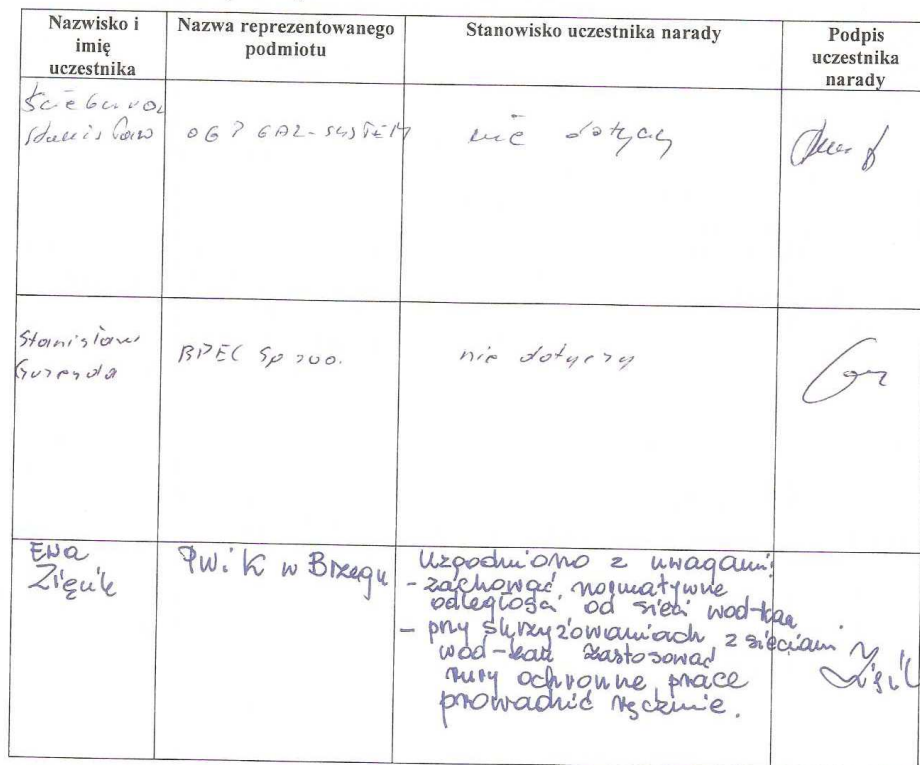 Nazwisko i
imię
uczestnika
Nazwa reprezentowanego
podmiotu
Stanowisko uczestnika narady
Podpis
uczestnika
narady
Stanisław
OGP GAZ-SYSTEM
nie dotyczy
Stanisław
BPEC Sp zoo.
nie dotyczy
Ewa
Zięnik
PWiK w Brzegu
Uzgodniono z uwagami:
- zachować normatywne
odległości od sieci wod-kan
- przy skrzyżowaniach z sieciami
wod-kan zastosować
rury ochronne prace
prowadzić ręcznie.